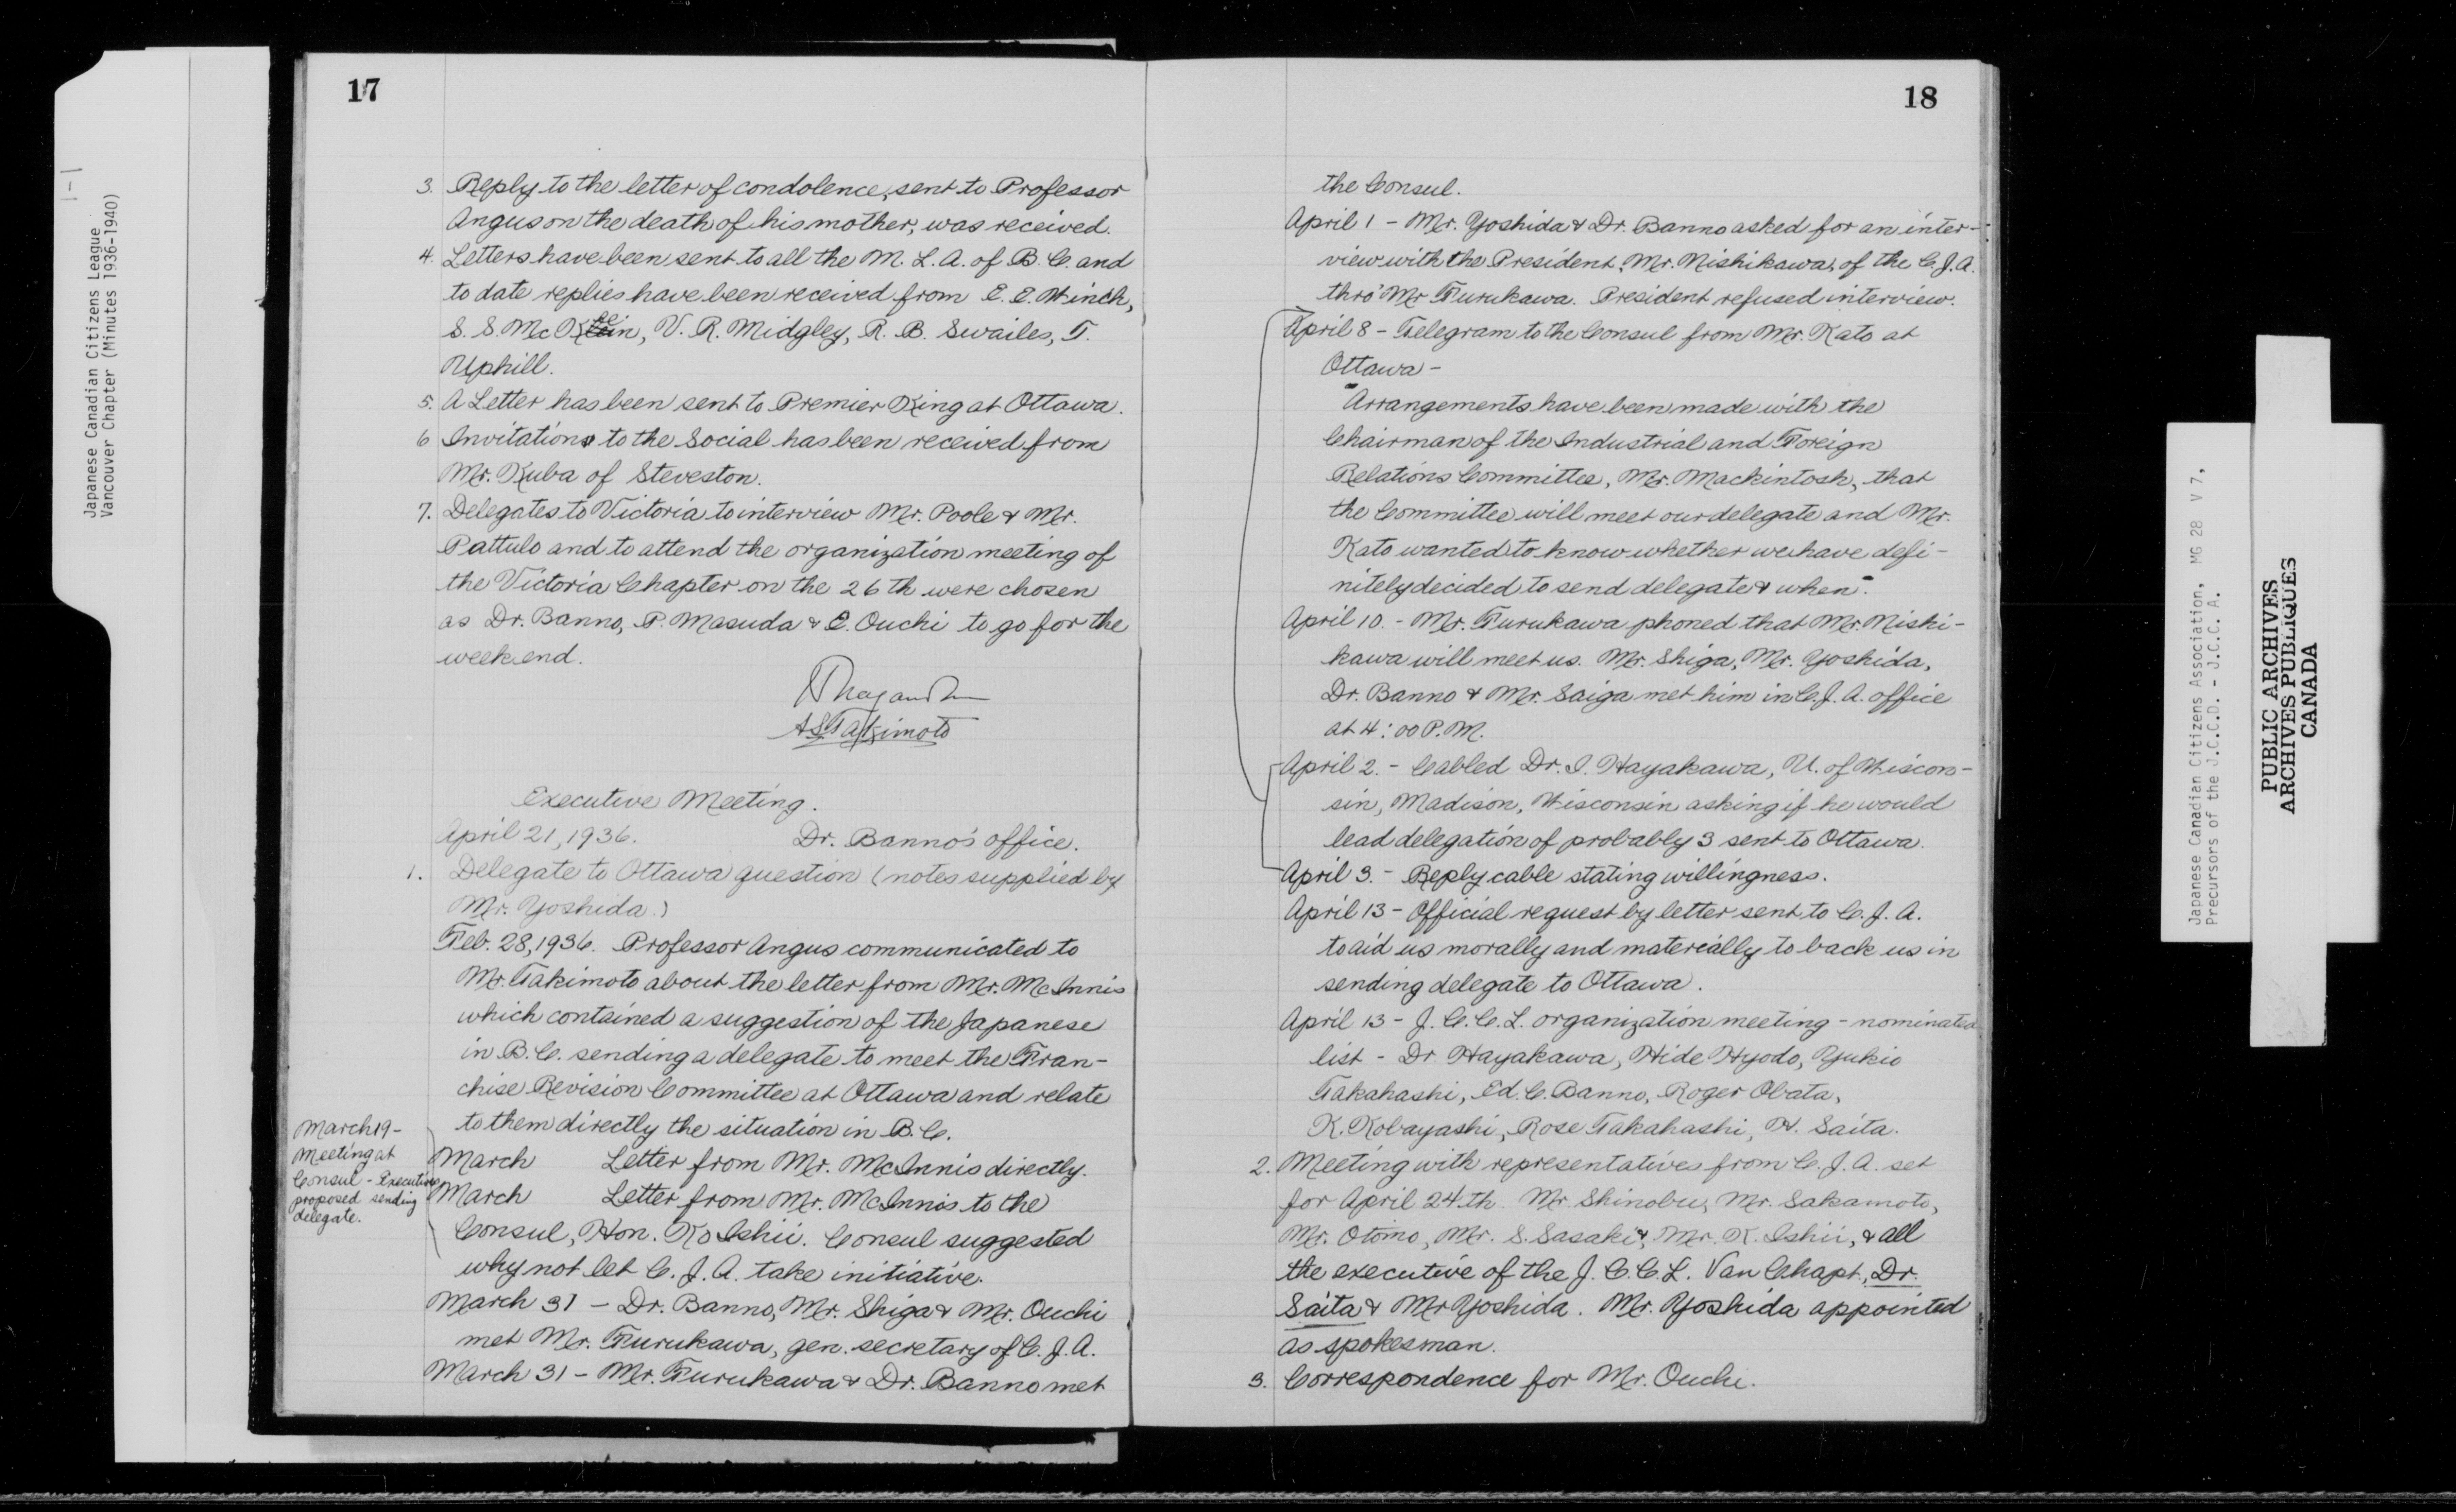 1-1
Japanese Canadian Citizens League
Vancouver Chapter (Minutes 1936-1940)
17
3. Reply to the letter of condolence, sent to Professor
Angus on the death of his mother, was received.
4. Letters have been sent to all the M. L. A. of B. C. and
to date replies have been received from E. E. Winch,
S. S. McKeen, V. R. Midgley, R. B. Swailes, T.
Uphill.
5. A Letter has been sent to Premier King at Ottawa.
6 Invitations to the Social has been received from
Mr. Kuba of Steveston.
7. Delegates to Victoria to interview Mr. Poole & Mr.
Pattulo and to attend the organization meeting of
the Victoria Chapter on the 26th were chosen
as Dr. Banno, P. Masuda & E. Ouchi to go for the
weekend.
Takimoto
Executive Meeting.
April 21, 1936. Dr. Banno's office.
1. Delegate to Ottawa question (notes supplied by
Mr. Yoshida.)
Feb. 28, 1936. Professor Angus communicated to
Mr. Takimoto about the letter from Mr. McInnis
which contained a suggestion of the Japanese
in B. C. sending a delegate to meet the Fran-
chise Revision Committee at Ottawa and relate
to them directly the situation in B. C.
March 19-
Meeting at
Consul - Executive
proposed sending
delegate.
March Letter from Mr. McInnis directly.
March Letter from Mr. McInnis to the
Consul, Hon. Ko Ishii. Consul suggested
why not let C. J. A. take initiative.
March 31 - Dr. Banno, Mr. Shiga & Mr. Ouchi
met Mr. Furukawa, gen. secretary of C. J. A.
March 31 - Mr. Furukawa & Dr. Banno met
18
the Consul.
April 1 - Mr. Yoshida & Dr. Banno asked for an inter-
view with the President, Mr. Nishikawa, of the C. J. A.
thro' Mr Furukawa. President refused interview.
April 8 - Telegram to the Consul from Mr. Kato at
Ottawa -
"Arrangements have been made with the
Chairman of the Industrial and Foreign
Relations Committee, Mr. Mackintosh, that
the Committee will meet our delegate and Mr.
Kato wanted to know whether we have defi-
nitely decided to send delegate & when."
April 10. - Mr. Furukawa phoned that Mr. Nishi-
kawa will meet us. Mr. Shiga, Mr. Yoshida,
Dr. Banno & Mr. Saiga met him in C. J. A. office
at 4:00 P. M.
April 2. - Cabled Dr. I. Hayakawa, U. of Wiscon-
sin, Madison, Wisconsin asking if he would
lead delegation of probably 3 sent to Ottawa.
April 3. - Reply cable stating willingness.
April 13 - Official request by letter sent to C. J. A.
to aid us morally and materially to back us in
sending delegate to Ottawa.
April 13 - J. C. C. L. organization meeting - nominated
list - Dr. Hayakawa, Hide Hyodo, Yukio
Takahashi, Ed. C. Banno, Roger Obata,
K. Kobayashi, Rose Takahashi, H. Saita.
2. Meeting with representatives from C. J. A. set
for April 24th. Mr Shinobu, Mr. Sakamoto,
Mr. Otomo, Mr. S. Sasaki &, Mr. K. Ishii, & all
the executive of the J. C. C. L. Van Chapt., Dr.
Saita & Mr Yoshida. Mr. Yoshida appointed
as spokesman.
3. Correspondence for Mr. Ouchi.
Japanese Canadian Citizens Association, MG 28 V 7.
Precursors of the J.C.C.D. - J.C.C. A.
PUBLIC ARCHIVES
ARCHIVES PUBLIQUES
CANADA